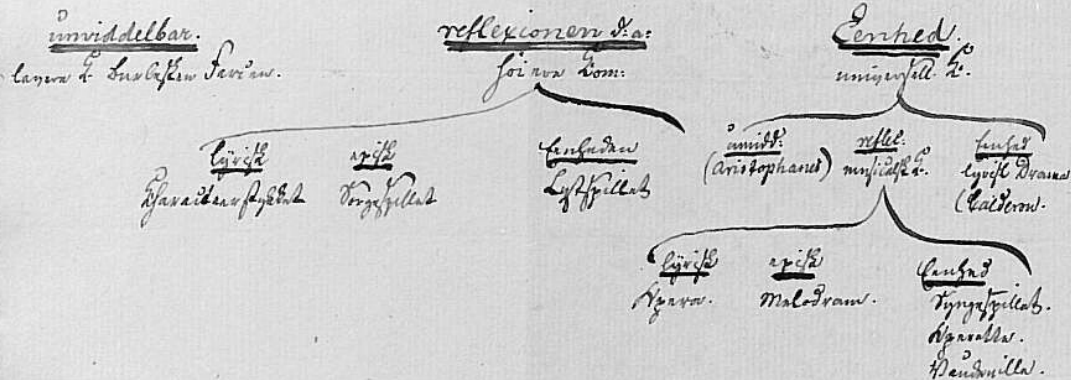 umiddelbar.
lavere K. burlesken Farcen.
reflexionen d: a:
høiere Kom:
Eenhed.
universell. K.
lyrisk
Charakteerstykket
episk
Sørgespillet
Eenheden
Lystspillet
umidd:
(Aristophanes)
reflex:
musicalsk K.
Eenhed
lyrisk Drama
(Calderon.
lyrisk
Opera.
episk
Melodram.
Eenhed
Syngespillet.
Operette.
Vaudeville.